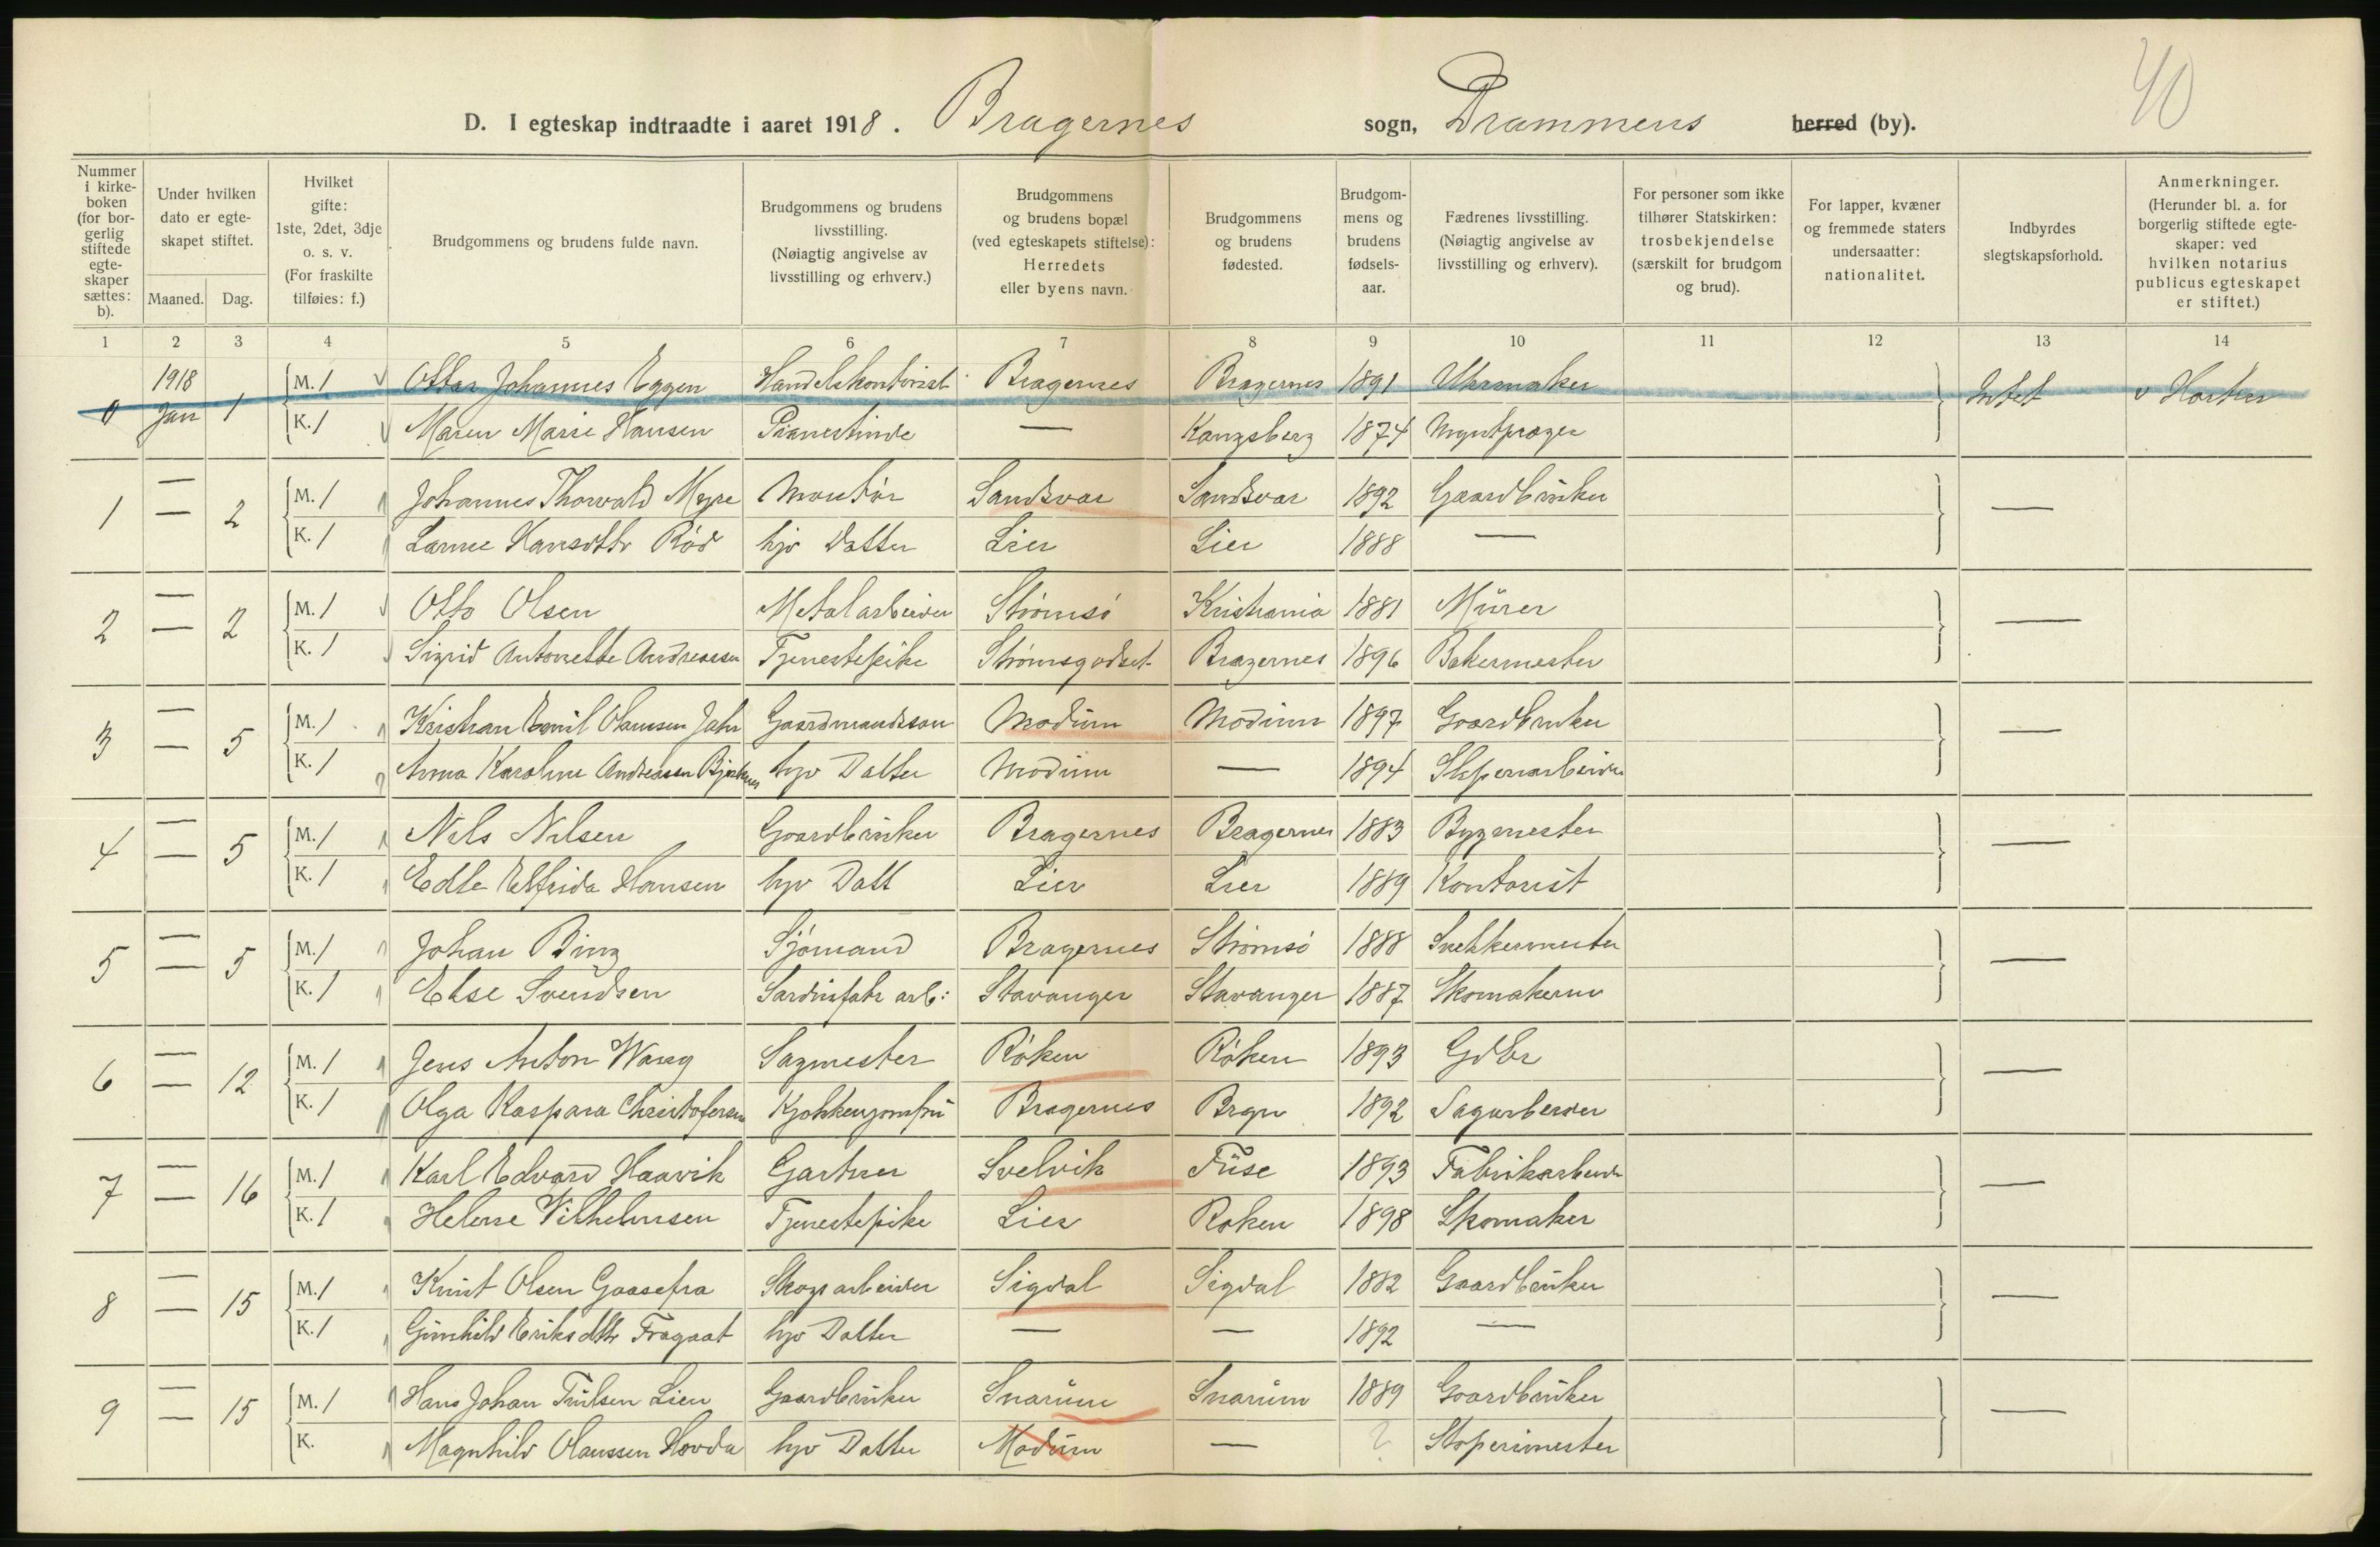 40
D. I egteskap indtraadte i aaret 1918. Bragernes sogn, Drammens herred (by).
Nummer i kirkeboken (for borgerlig stiftede egteskaper sættes: b).
Under hvilken dato er egteskapet stiftet. Maaned. Dag.
Hvilket gifte: 1ste, 2det, 3dje o. s. v. (For fraskilte tilføies: f.)
Brudgommens og brudens fulde navn.
Brudgommens og brudens livsstilling. (Nøiagtig angivelse av livsstilling og erhverv.)
Brudgommens og brudens bopæl (ved egteskapets stiftelse): Herredets eller byens navn.
Brudgommens og brudens fødested.
Brudgommens og brudens fødselsaar.
Fædrenes livsstilling. (Nøiagtig angivelse av livsstilling og erhverv).
For personer som ikke tilhører Statskirken: trosbekjendelse (særskilt for brudgom og brud).
For lapper, kvæner og fremmede staters undersaatter: nationalitet.
Indbyrdes slegtskapsforhold.
Anmerkninger. (Herunder bl. a. for borgerlig stiftede egteskaper: ved hvilken notarius publicus egteskapet er stiftet.)
1 2 3 4 5 6 7 8 9 10 11 12 13 14
0 1918 Jan 1 M. 1 Ottar Johannes Eggen Handelskontorist Bragernes Bragernes 1891 Uhrmaker Intet v Horten
K. 1 Maren Marie Hansen Pianestinde — Kongsberg 1874 Myntpræger
1 — — 2 M. 1 Johannes Thorvald Myre Montør Sandsvær Sandsvær 1892 Gaardbruker —
K. 1 Hansdttr Rød hjv Datter Lier Lier 1888 —
2 — — 2 M. 1 Otto Olsen Metalarbeider Strømsø Kristiania 1881 Mürer —
K. 1 Sigrid Antonette Andreassen Tjenestepike Strømsgodset Bragernes 1896 Bakermester
3 — — 5 M. 1 Kristian Emil Olaussen Gaardmandssøn Modum Modum 1897 Gaardbruker —
K. 1 Anna Karoline Andreassen hjv Datter Modum — 1894 Sliperiarbeider
4 — — 5 M. 1 Nils Nilsen Gaardbruker Bragernes Bragernes 1883 Bygmester —
K. 1 Edle Elfrida Hansen hjv Datt Lier Lier 1889 Kontorist
5 — — 5 M. 1 Johan Bing Sjømand Bragernes Strømsø 1888 Snekkermester —
K. 1 Else Svendsen Sardinfabr arb: Stavanger Stavanger 1887 Skomakersv
6 — — 12 M. 1 Jens Anton Wang Sagmester Røken Røken 1893 Gdbr —
K. 1 Olga Kaspara Christofersen Kjøkkenjomfru Bragernes Brgn 1892 Sagarbeider
7 — — 16 M. 1 Karl Edvard Haavik Gartner Svelvik Füse 1893 Fabrikarbeider —
K. 1 Helene Vilhelmsen Tjenestepike Lier Røken 1898 Skomaker
8 — — 15 M. 1 Knut Olsen Gaasefra Skogsarbeider Sigdal Sigdal 1882 Gaardbruker —
K. 1 Gunhild Eriksdttr Fragaat hjv Datter — — 1892 —
9 — — 15 M. 1 Hans Johan Truulsen Lien Gaardbruker Snarum Snarum 1889 Gaardbruker —
K. Magnhild Olaussen Hovda hjv Datter Modum — ? Sliperimester